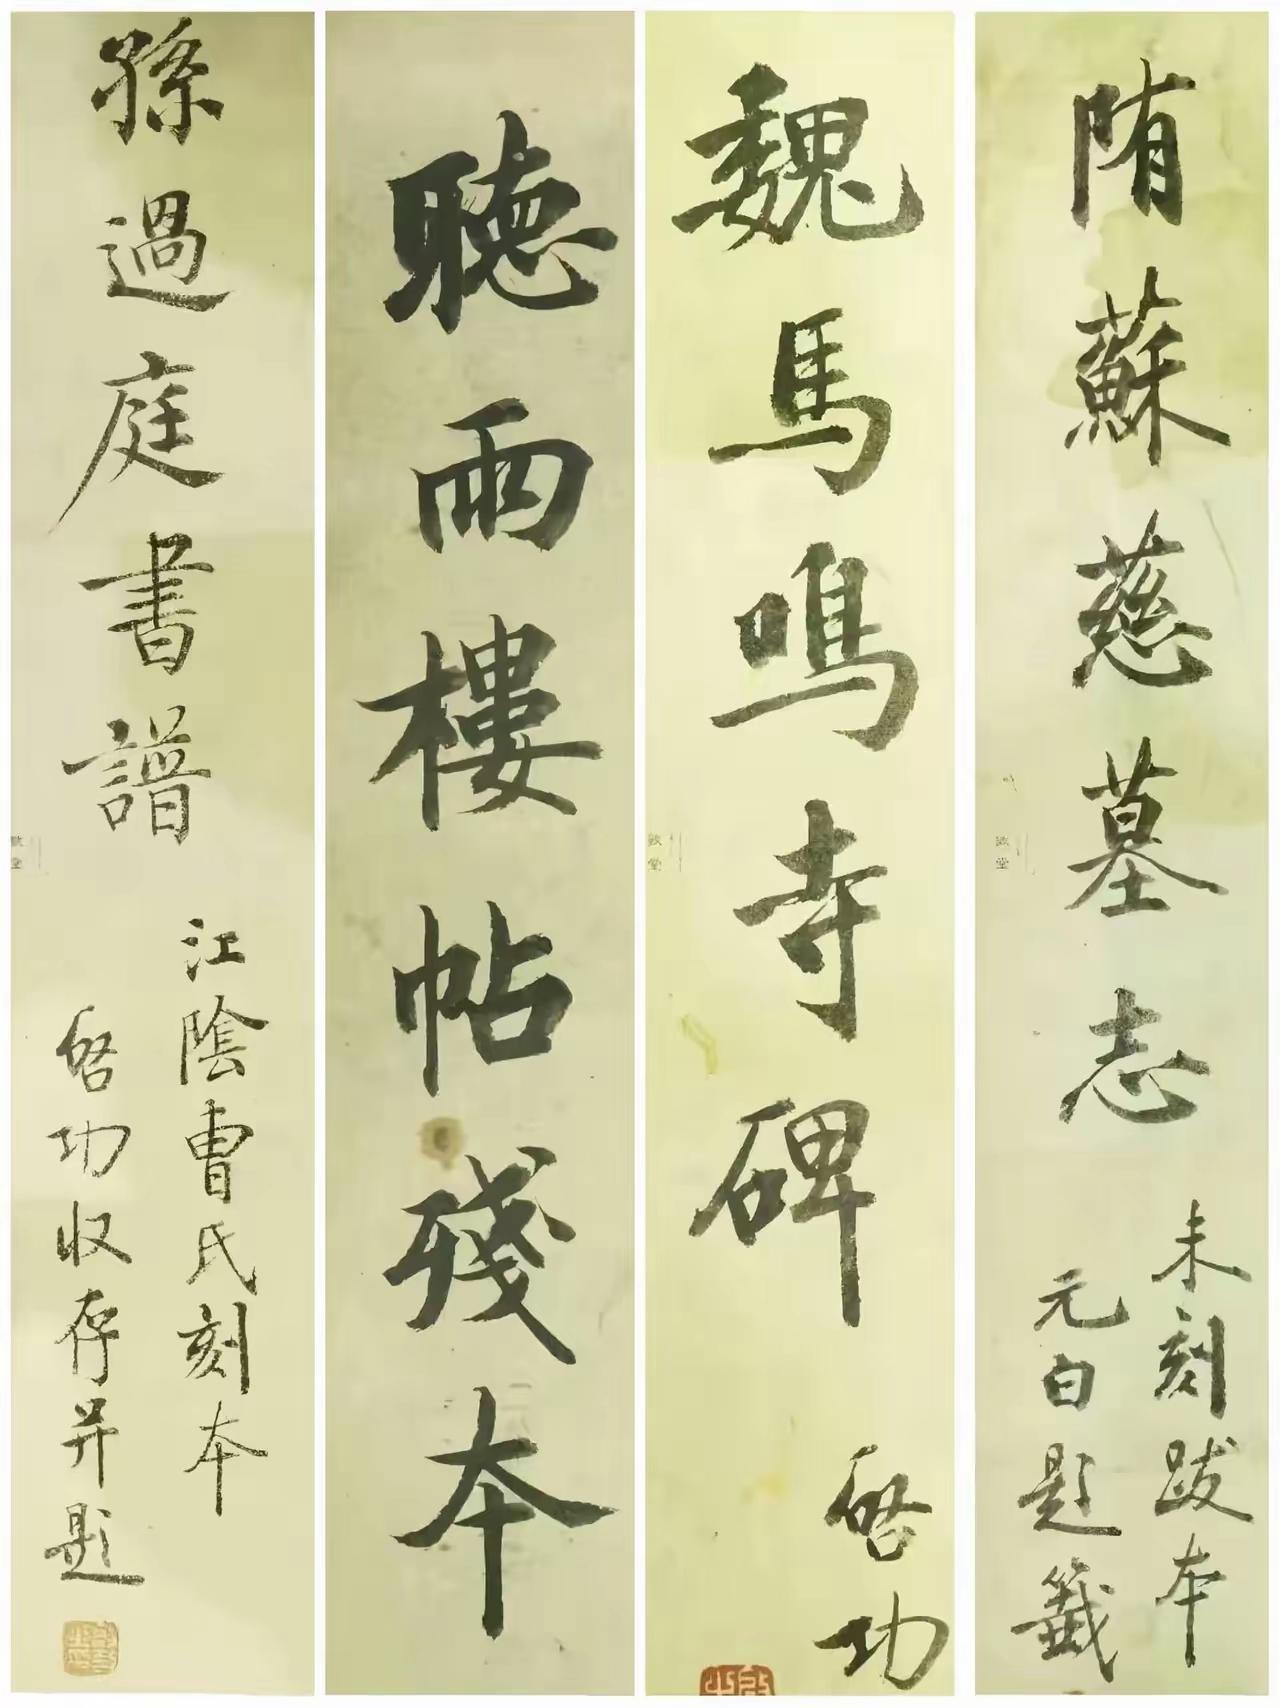 陏蘇慈墓志
未刻跋本
元白题籤
魏馬鳴寺碑
啓功
聽雨樓帖殘本
孫過庭書譜
江陰曹氏刻本
啓功収存并题